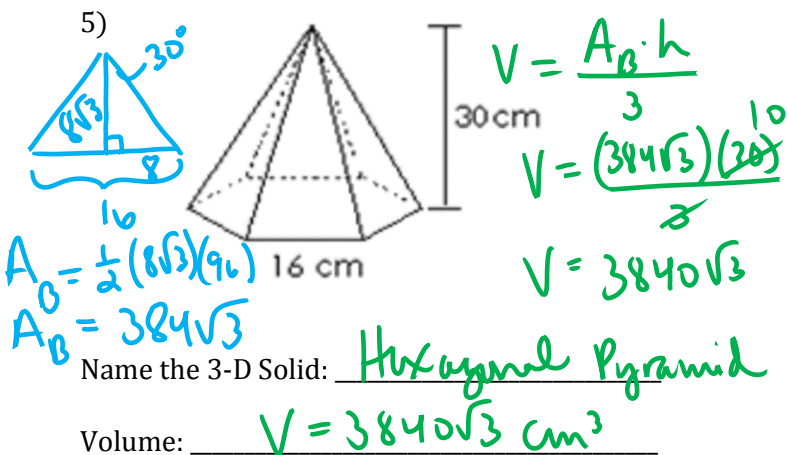 5)
30°
8√3
8
16
A_B = 1/2 (8√3)(96)
A_B = 384√3
30 cm
16 cm
V = A_B · h / 3
10
V = (384√3)(30) / 3
V = 3840√3
Name the 3-D Solid: Hexagonal Pyramid
Volume: V = 3840√3 cm³